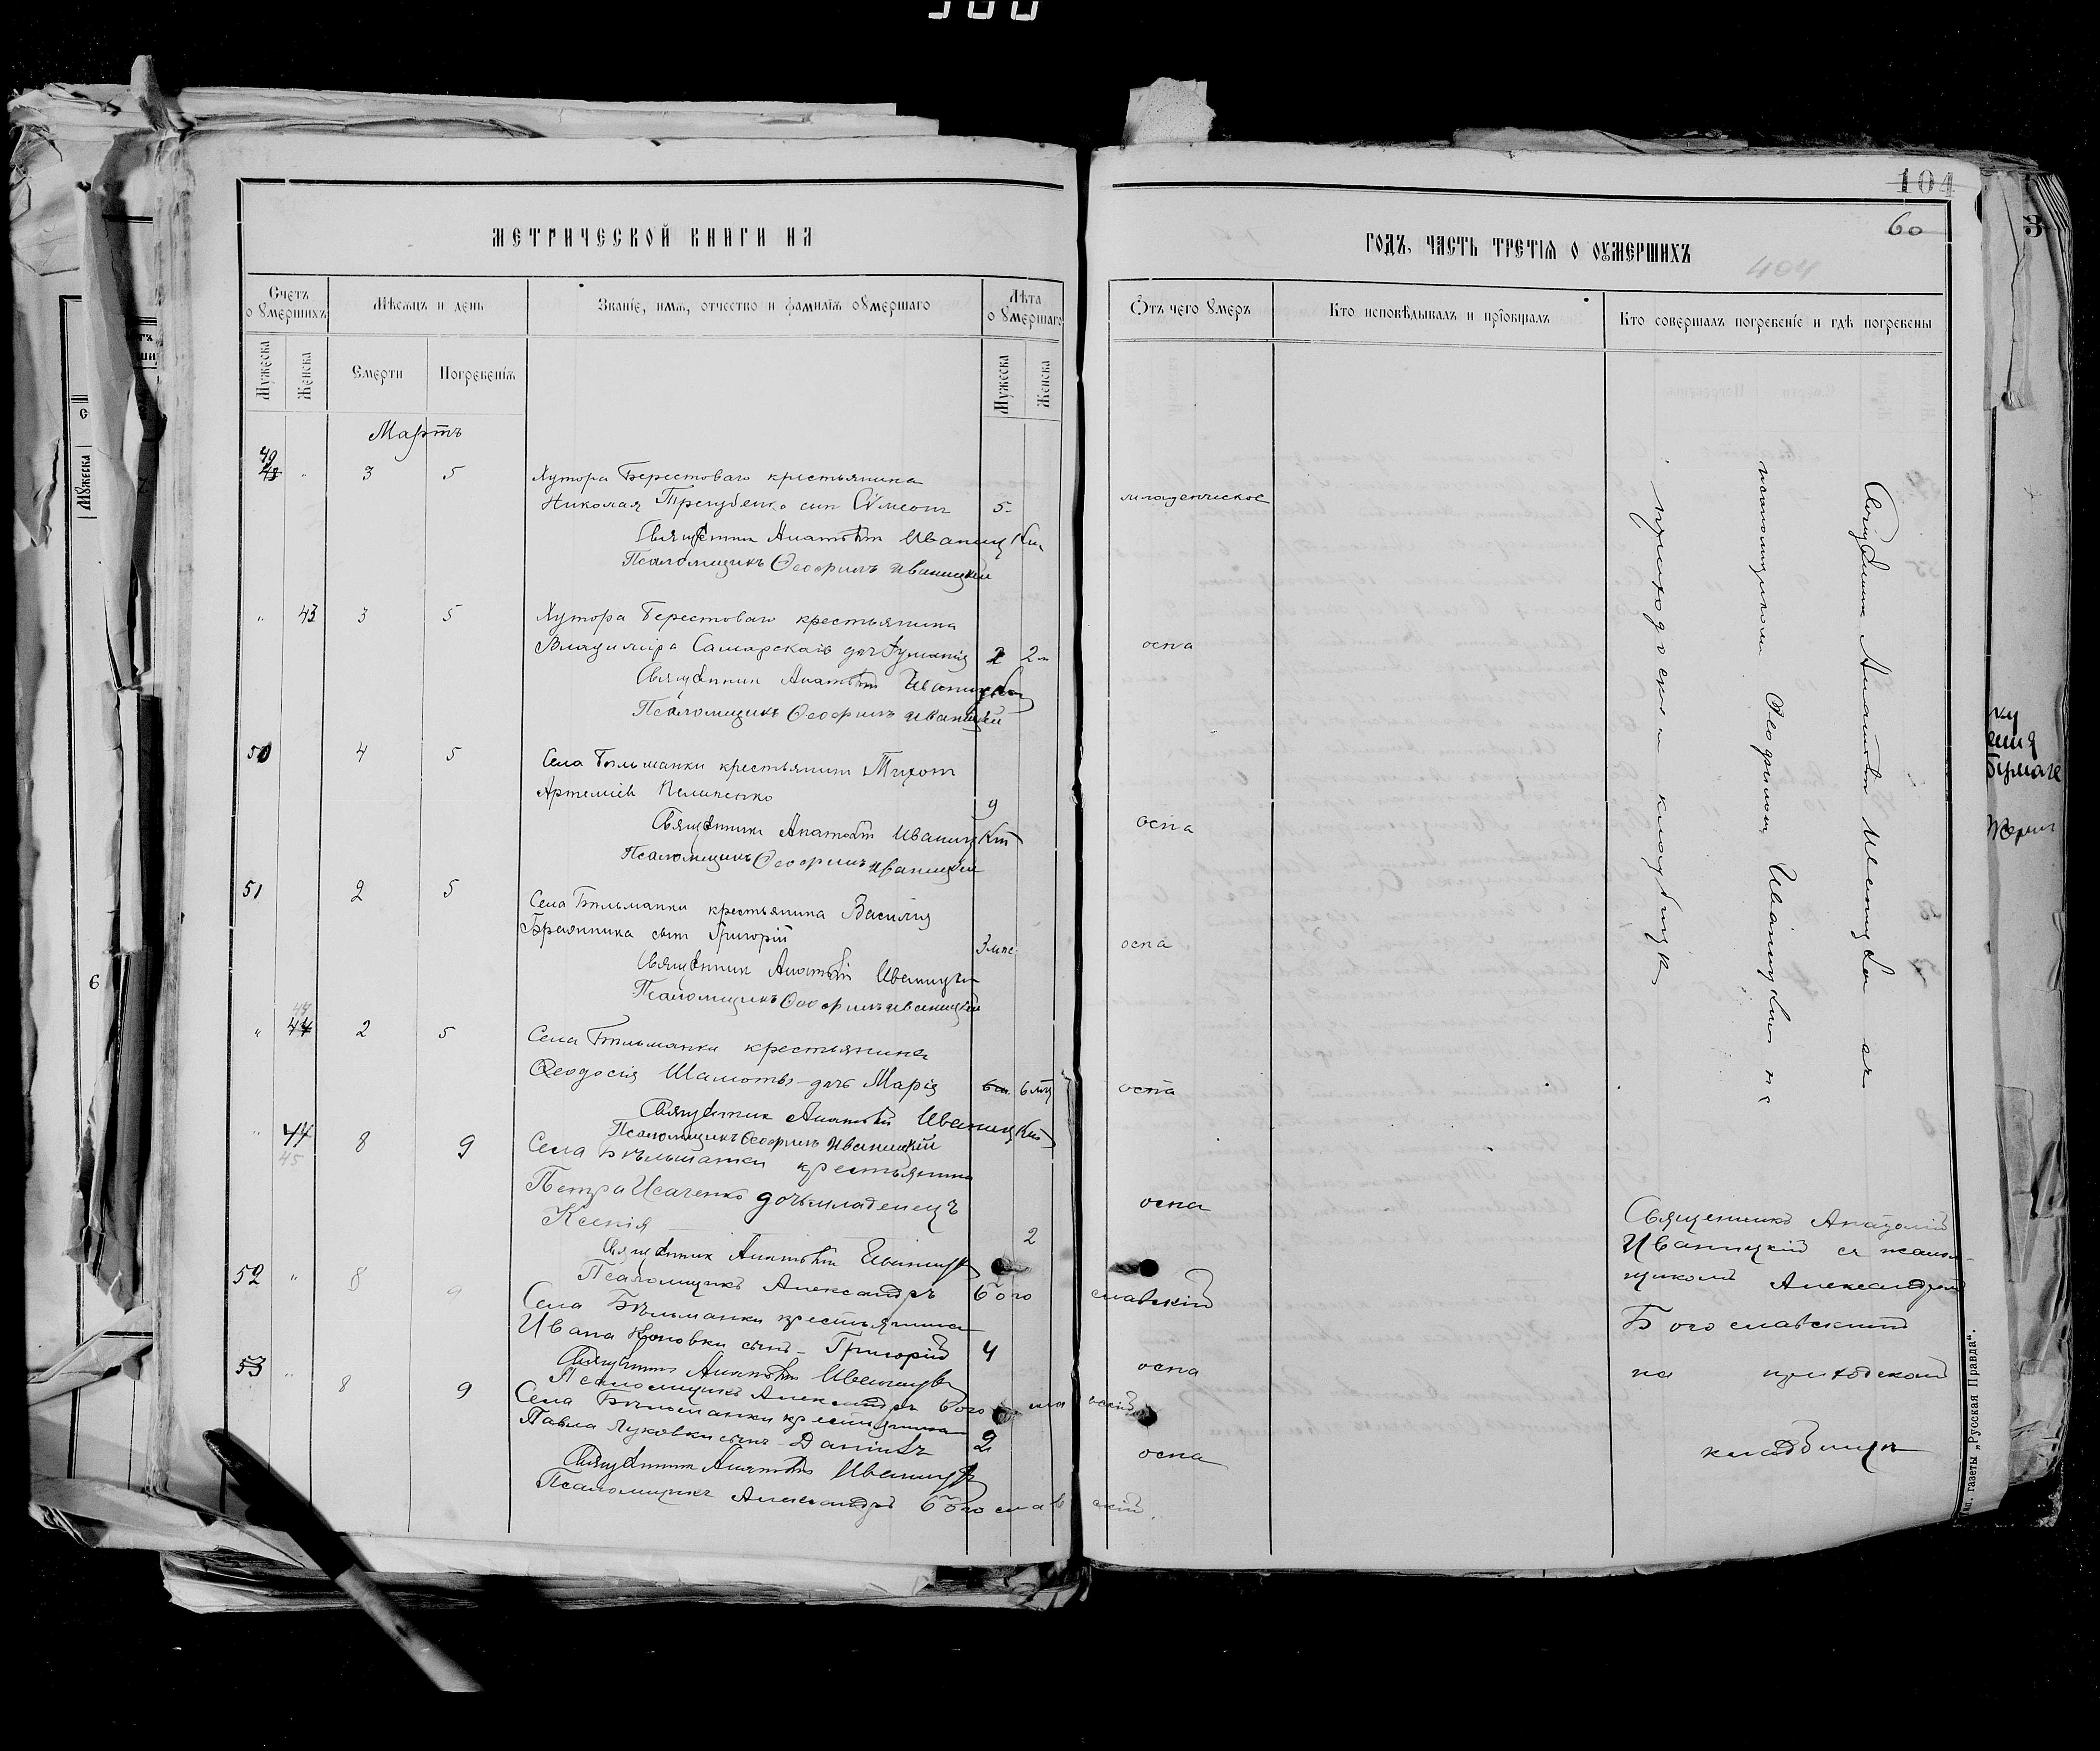 МЕТРИЧЕСКОЙ КНИГИ НА
Счетъ оумершихъ
Мѣсяцъ и день
Званіе, имя, отчество и фамилія оумершаго
Лѣта оумершаго
Мужеска
Женска
Смерти
Погребенія
Мужеска
Женска
Мартъ
49
48 " 3 5 Хутора Берестоваго крестьянина
Николая Трегубенко сын Сумеонъ 5
Священник Анатолій Иваницкій
Псаломщикъ Ѳеофилъ Иваницкій
" 43 3 5 Хутора Берестоваго крестьянина
Владиміра Самарскаго дочь 2
Священник Анатолій Иваницкій
Псаломщикъ Ѳеофилъ Иваницкій
50 4 5 Села Бѣльманки крестьянинъ Тихонъ
Артеміев 9
Священникъ Анатолій Иваницкій
Псаломщикъ Ѳеофилъ Иваницкій
51 2 5 Села Бѣльманки крестьянина Василія
сынъ Григорій 3 мѣс
Священник Анатолій Иваницкій
Псаломщикъ Ѳеофилъ Иваницкій
" 44 2 5 Села Бѣльманки крестьянина
Ѳеодосія Шамоты дочь Марія 6 мѣс
Священник Анатолій Иваницкій
Псаломщикъ Ѳеофилъ Иваницкій
" 44 8 9 Села Бѣльманки крестьянина
45
Петра Исаченко дочь младенецъ
Ксенія 2
Священник Анатолій Иваницкій
Псаломщикъ Александръ Богославскій
52 " 8 9 Села Бѣльманки крестьянина
Ивана сынъ - Григорій 4
Священник Анатолій Иваницкій
Псаломщикъ Александръ Богославскій
53 " 8 9 Села Бѣльманки крестьянина
Павла Луковки сынъ - Даніилъ 2
Священник Анатолій Иваницкій
Псаломщикъ Александръ Богославскій
104
60
404
ГОДЪ, ЧАСТЬ ТРЕТІЯ О ОУМЕРШИХЪ
Отъ чего умеръ
Кто исповѣдывалъ и пріобщалъ
Кто совершалъ погребеніе и гдѣ погребены
младенческое
оспа
оспа
оспа
оспа
оспа
оспа
оспа
Священник Анатолій Иваницкій съ
псаломщикомъ Ѳеофиломъ Иваницкимъ на
приходскомъ кладбищѣ
Священникъ Анатолій
Иваницкій съ псалом-
щикомъ Александромъ
Богославскимъ
на приходскомъ
кладбищѣ
газеты „Русская Правда“.
6
3